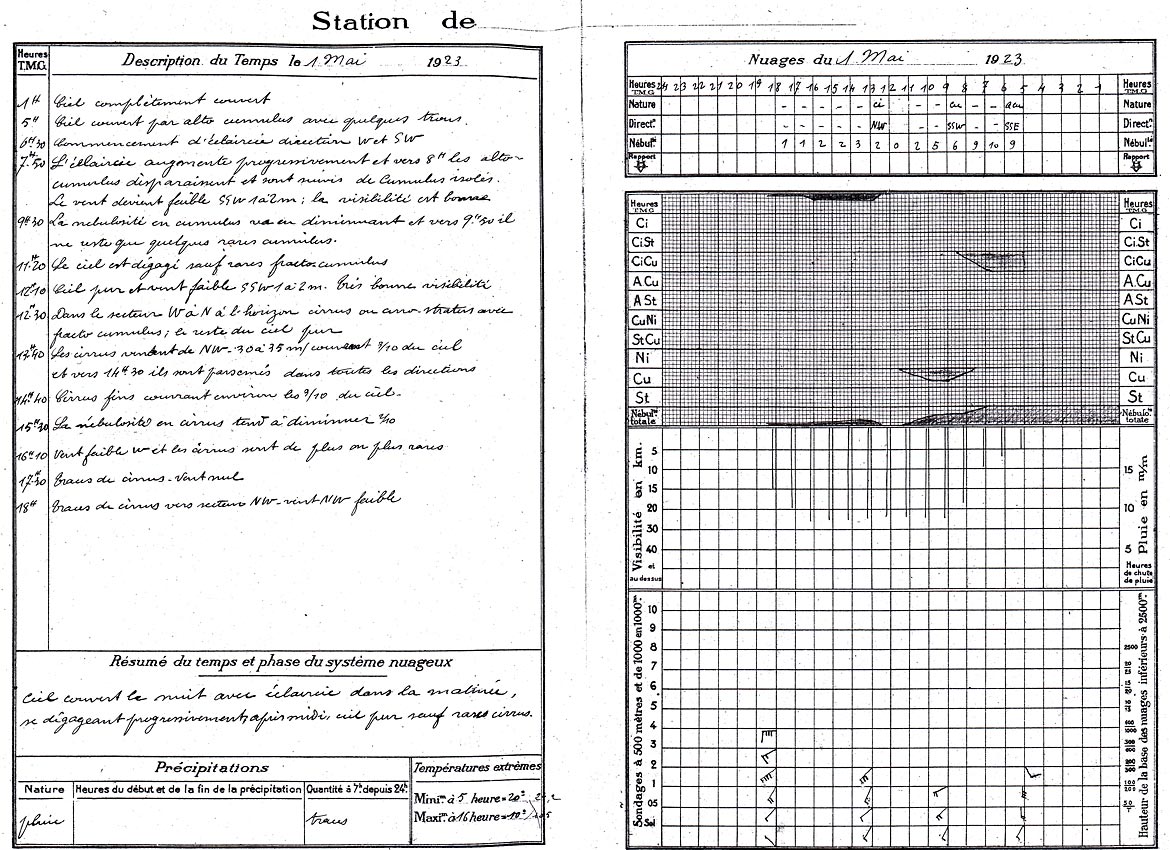 Station de
Heures T.M.G.
Description du Temps le 1 Mai 1923
1H Ciel complètement couvert
5H Ciel couvert par alto cumulus avec quelques trous.
6H30 Commencement d'éclaircie direction W et SW
7H50 L'éclaircie augmente progressivement et vers 8H les alto-
cumulus disparaissent et sont suivis de Cumulus isolés.
Le vent devient faible SSW 1 à 2m; la visibilité est bonne
9H30 La nébulosité en cumulus va en diminuant et vers 9H50 il
ne reste que quelques rares cumulus.
11H20 Le ciel est dégagé sauf rares fracto-cumulus
12H10 Ciel pur et vent faible SSW 1 à 2m. Très bonne visibilité
12H30 Dans le secteur W à N à l'horizon cirrus ou cirro-stratus avec
fracto cumulus; le reste du ciel pur
13H40 Les cirrus viennent de NW - 30 à 35 m/ couvrent /10 du ciel
et vers 14H30 ils sont parsemés dans toutes les directions
14H40 Cirrus fins couvrant environ les 3/10 du ciel.
15H30 La nébulosité en cirrus tend à diminuer 2/10
16H10 Vent faible W et les cirrus sont de plus en plus rares
17H30 Traces de cirrus - Vent nul
18H Traces de cirrus vers secteur NW - vent NW faible
Résumé du temps et phase du système nuageux
Ciel couvert la nuit avec éclaircie dans la matinée,
se dégageant progressivement; après midi, ciel pur sauf rares cirrus.
Précipitations
Nature Heures du début et de la fin de la précipitation Quantité à 7h depuis 24h
pluie traces
Températures extrêmes
Mini.m à 5 heure =
Maxi.m à 16 heure =
Nuages du 1 Mai 1923
Heures T.M.G. 24 23 22 21 20 19 18 17 16 15 14 13 12 11 10 9 8 7 6 5 4 3 2 1 Heures T.M.G.
Nature - - - - - ci - - - cu - - acu Nature
Direct.n - - - - - NW - - - SSW - - SSE Direct.n
Nébul.té 1 1 2 2 3 2 0 2 5 6 9 10 9 Nébul.té
Rapport Rapport
Heures T.M.G. Heures T.M.G.
Ci Ci
CiSt Ci.St
CiCu CiCu
A.Cu A.Cu
A St A St
CuNi CuNi
StCu StCu
Ni Ni
Cu Cu
St St
Nébul.té totale Nébulo.té totale
Visibilité en km.
5
10
15
20
30
40
et au dessus
Pluie en m/m
15
10
5
Heures de chute de pluie
Sondages à 500 mètres et de 1000 en 1000m.
10
9
8
7
6
5
4
3
2
1
05
Sol
Hauteur de la base des nuages inférieurs à 2500m.
2500